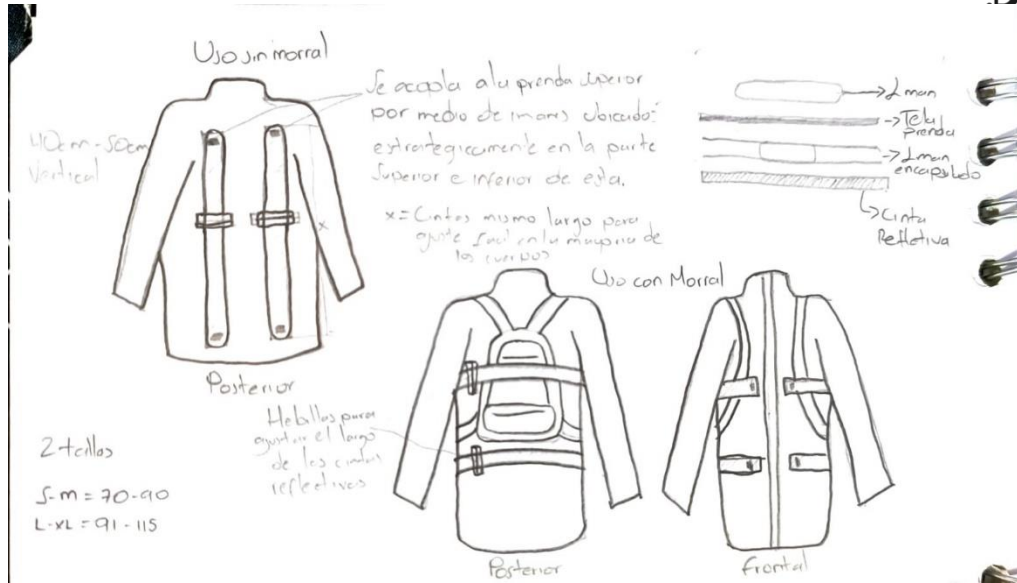 Uso sin morral
40cm-50cm
Vertical
Se acopla a la prenda superior
por medio de imanes ubicados
estrategicamente en la parte
Superior e inferior de esta.
x = Cintas mismo largo para
ajuste facil en la mayoria de
los cuerpos
x
Posterior
Iman
Tela
Prenda
Iman
encapsulado
Cinta
Reflectiva
Uso con Morral
Hebillas para
ajustar el largo
de las cintas
reflectivas
Posterior
Frontal
2 tallas
S-M = 70-90
L-XL = 91-115